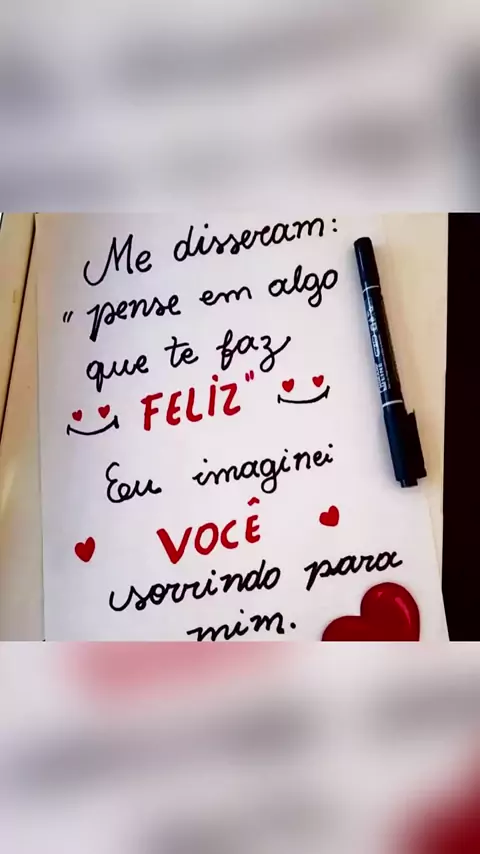 Me disseram:
"pense em algo
que te faz
FELIZ"
Eu imaginei
VOCÊ
sorrindo para
mim.